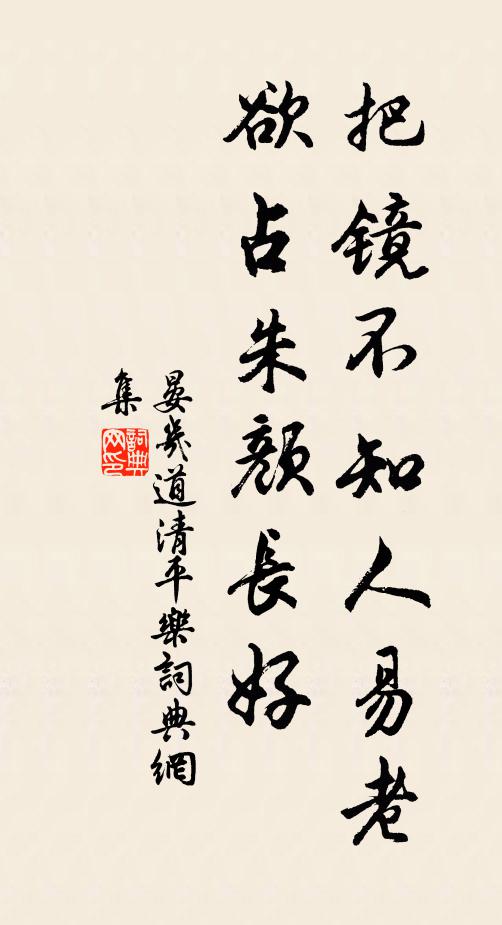 把鏡不知人易老
欲占朱顏長好
晏幾道清平樂詞典網
集
詞典网印